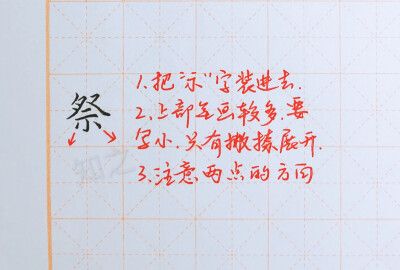 祭
1.把“示”字装进去.
2.上部笔画较多.要
写小.只有撇捺展开.
3.注意两点的方向
知之